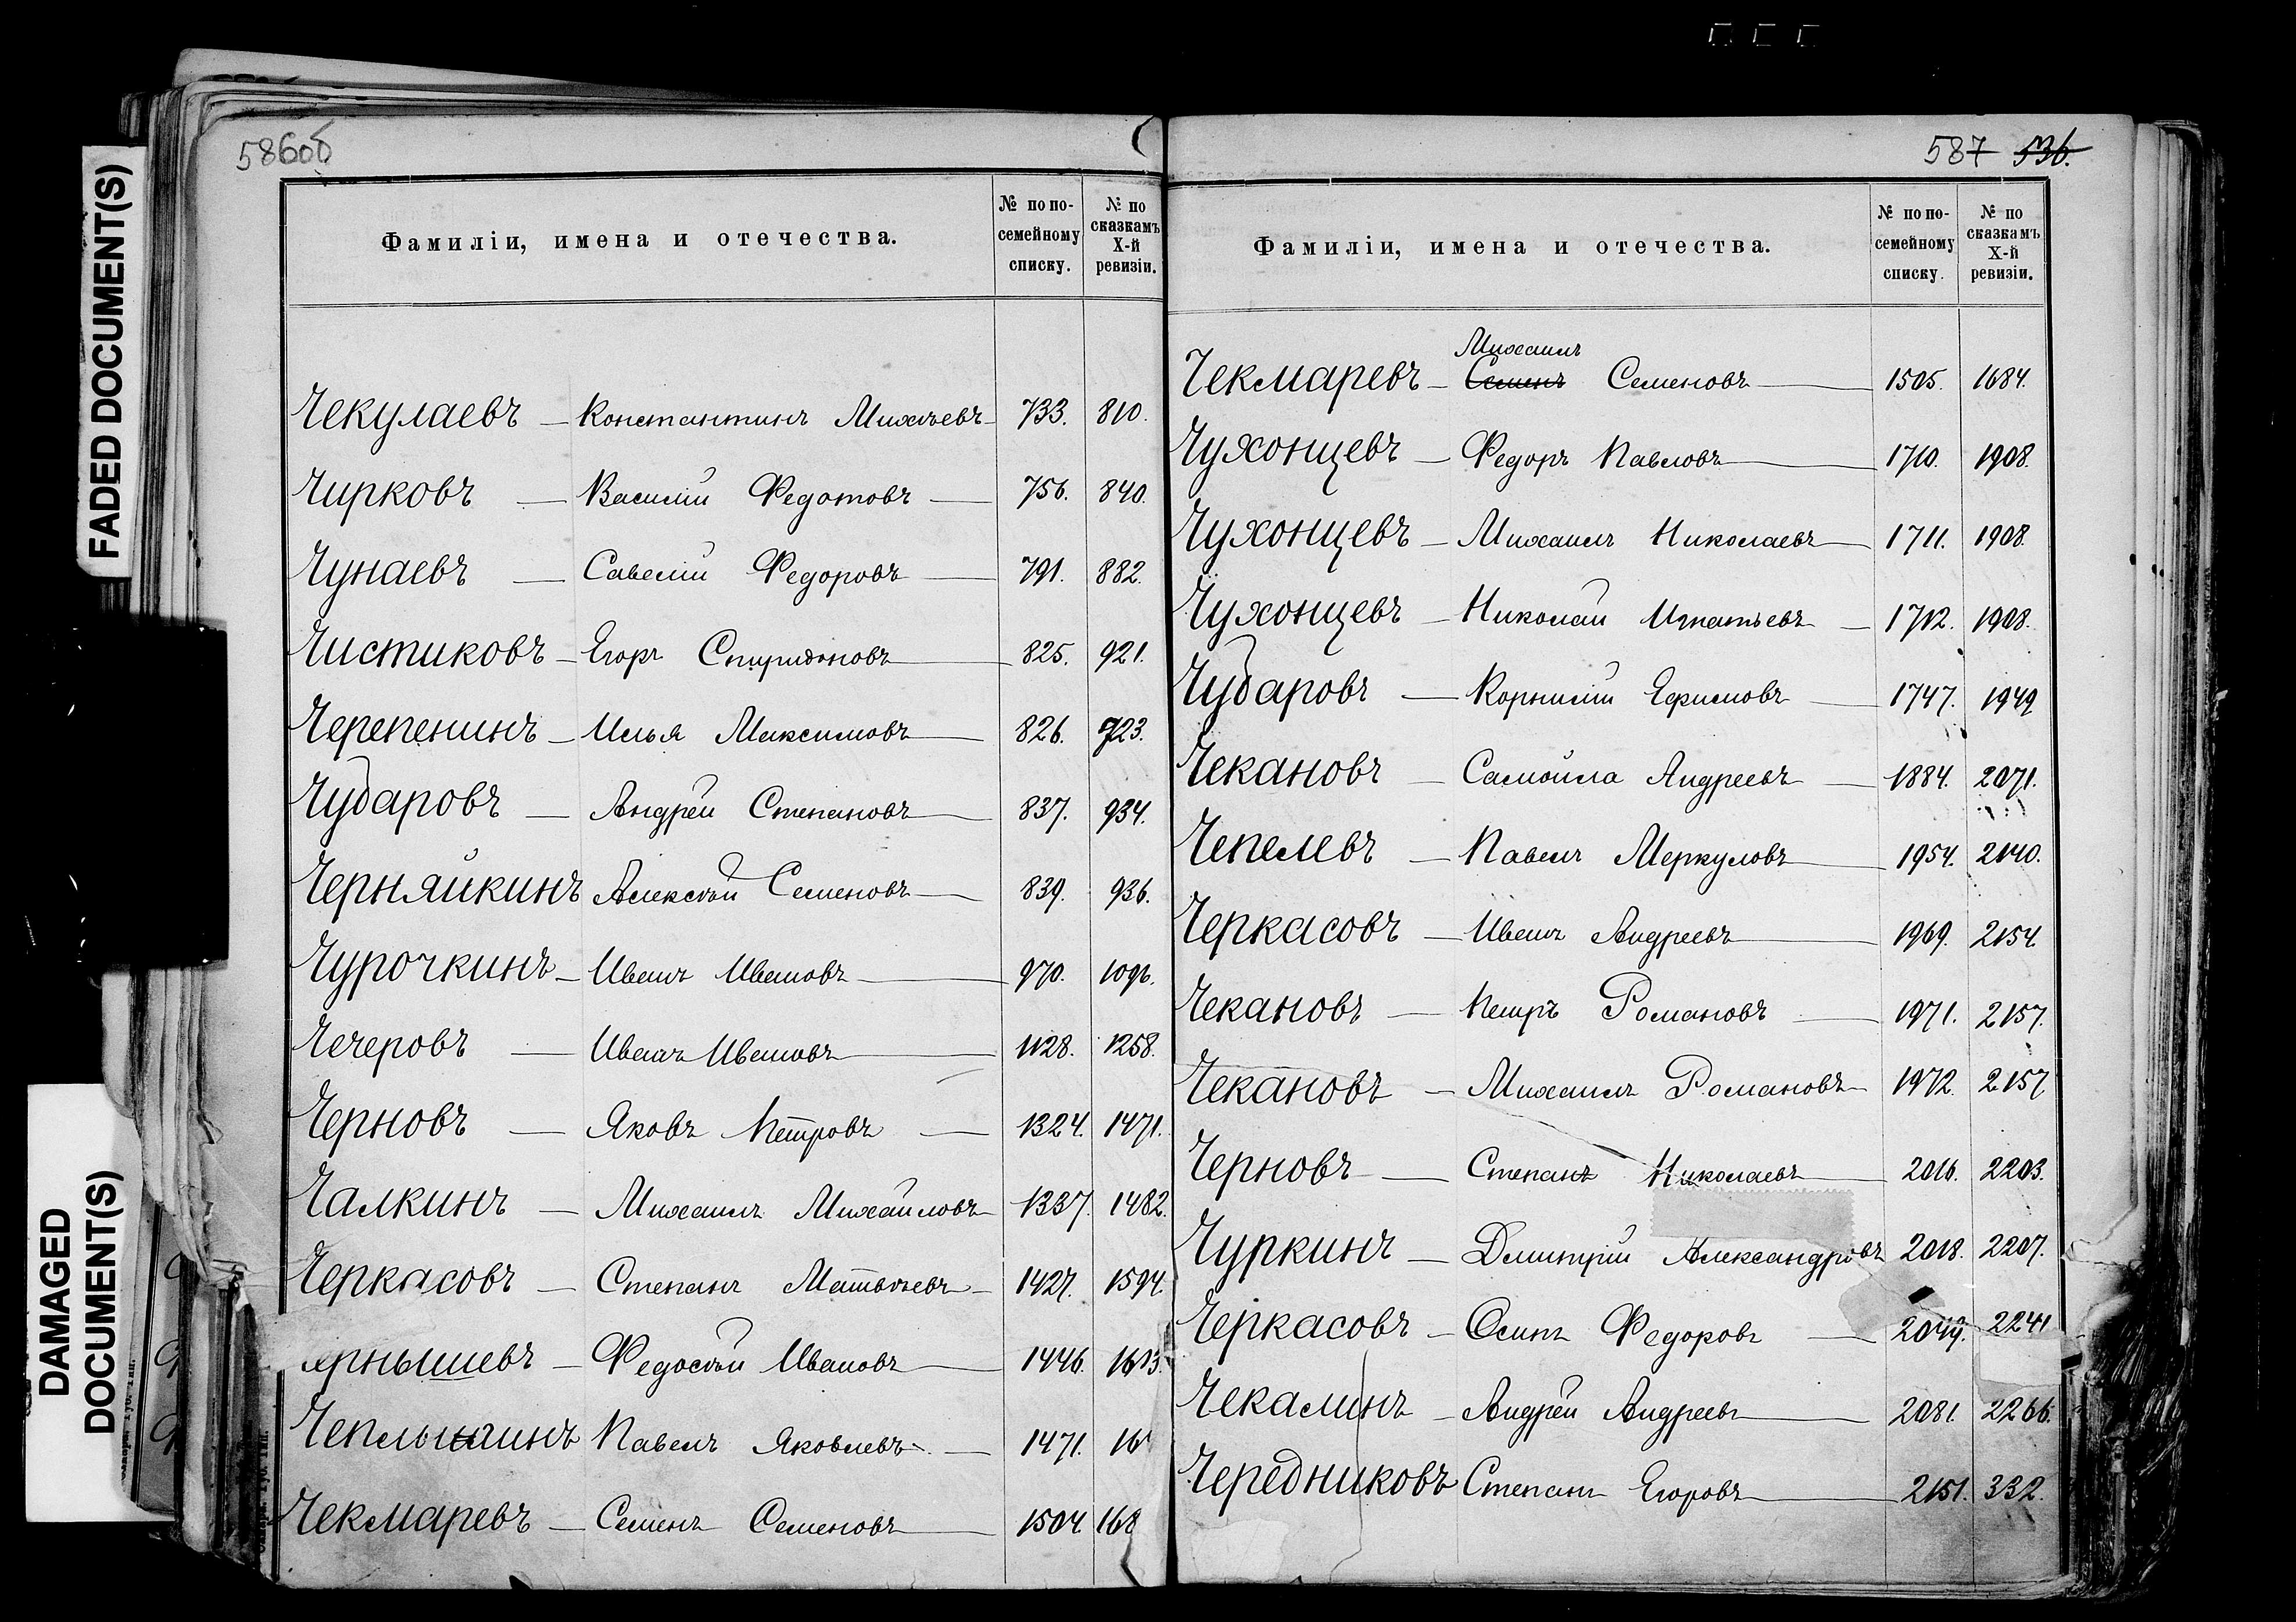 FADED DOCUMENT(S)
DAMAGED
DOCUMENT(S)
586об
Фамиліи, имена и отечества.
№ по по-
семейному
списку.
№ по
сказкамъ
X-й
ревизіи.
Чекулаевъ — Константинъ Михѣевъ 733. 810.
Чирковъ — Василій Федотовъ — 756. 840.
Чунаевъ — Савелій Федоровъ — 791. 882.
Чистиковъ — Егоръ Спиридоновъ — 825. 921.
Черепенинъ — Илья Максимовъ — 826. 923.
Чударовъ — Андрей Степановъ — 837. 934.
Черняйкинъ Алексѣй Семеновъ — 839. 936.
Чурочкинъ — Иванъ Ивановъ — 970. 1096.
Чечеровъ — Иванъ Ивановъ — 1128. 1258.
Черновъ — Яковъ Петровъ — 1324. 1471.
Чалкинъ — Михаилъ Михайловъ — 1337. 1482.
Черкасовъ — Степанъ Матвѣевъ — 1427. 1594.
ернышевъ — Федосѣй Ивановъ — 1446. 1613.
Павелъ Яковлевъ — 1471. 16
Чекмаревъ — Семенъ Семеновъ — 1504 168
587 536.
Фамиліи, имена и отечества.
№ по по-
семейному
списку.
№ по
сказкамъ
X-й
ревизіи.
Михаилъ
Чекмаревъ — Семенъ Семеновъ — 1505. 1684.
Чухонцевъ — Федоръ Павловъ — 1710. 1908.
Чухонцевъ — Михаилъ Николаевъ — 1711. 1908.
Чухонцевъ — Николай Игнатьевъ — 1712. 1908.
Чударовъ — Корнилій Ефимовъ — 1747. 1949
Чекановъ — Самойла Андреевъ — 1884. 2071.
Чепелевъ — Павелъ Меркуловъ — 1954. 2140.
Черкасовъ — Иванъ Андреевъ — 1969. 2154.
Чекановъ — Петръ Романовъ — 1971. 2157.
Чекановъ — Михаилъ Романовъ — 1972. 2157
Черновъ — Степанъ Николаевъ — 2016. 2203.
Чуркинъ — Дмитрій Александровъ 2018. 2207.
Черкасовъ — Осипъ Федоровъ — 2049. 2241
Чекалинъ — Андрей Андреевъ — 2081. 2266.
Чередниковъ Степанъ Егоровъ — 2151. 332.